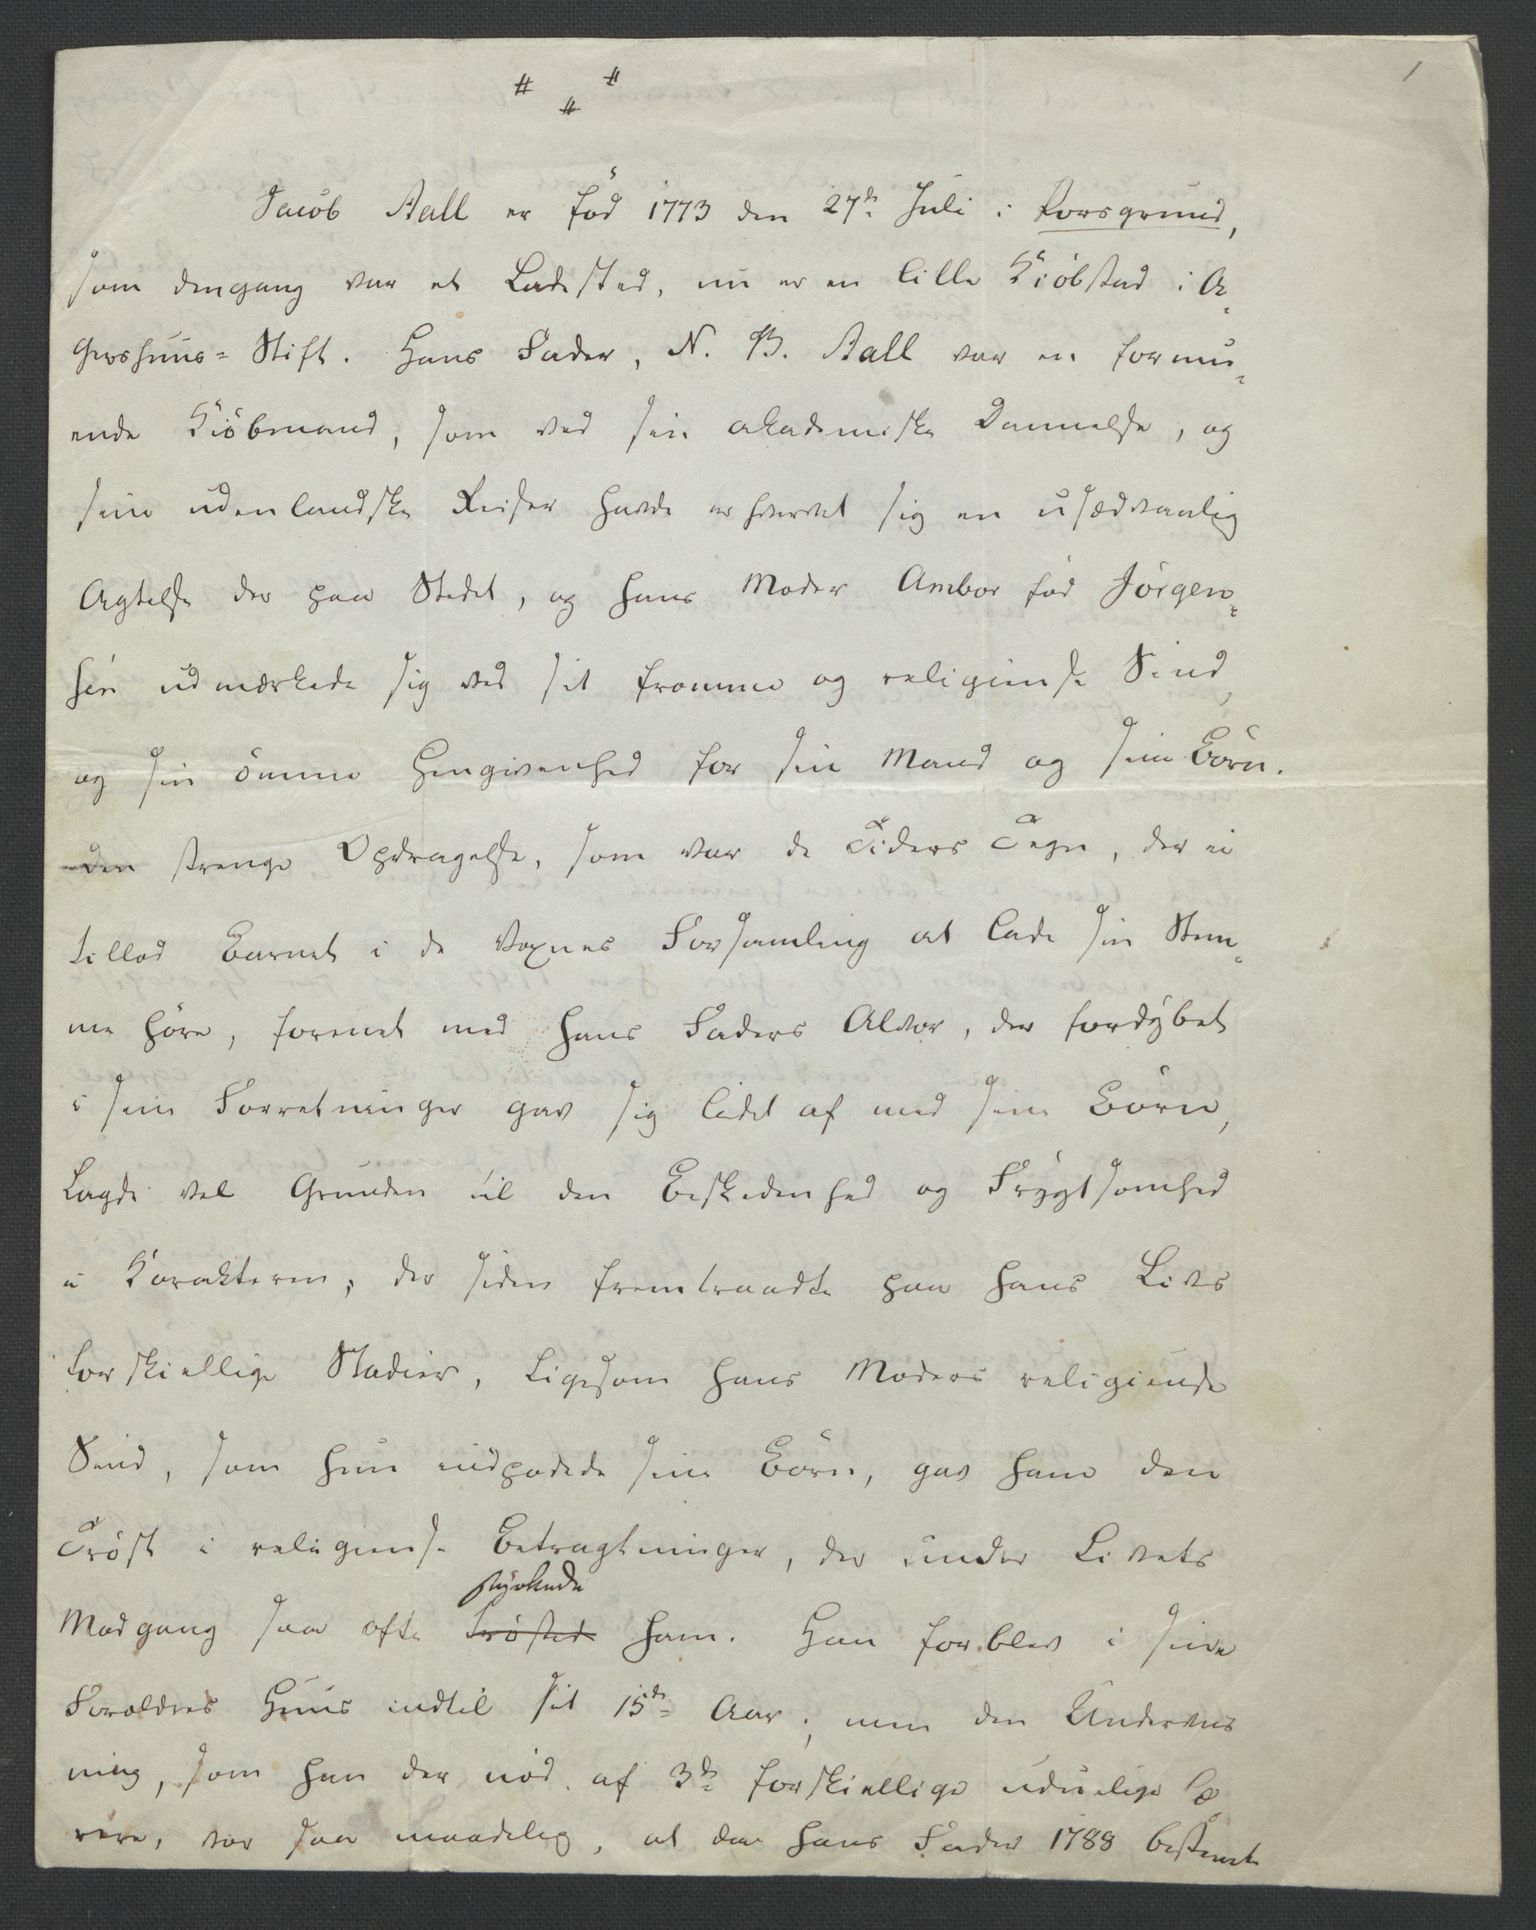 # # #
1
Jacob Aall er föd 1773 den 27de Juli i Porsgrund,
som dengang var et Ladested, nu er en lille Kiöbstad i A-
gershuus-Stift. Hans Fader, N. B. Aall var en formu-
ende Kiöbmand, som ved sin akademiske Dannelse, og
sine udenlandske Reiser havde erhvervet sig en usædvanlig
Agtelse der paa Stedet, og hans Moder Ambor föd Jörgen-
sen udmærkede sig ved sit fromme og religieuse Sind,
og sin ömme Hengivenhed for sin Mand og sine Börn.
Den strenge Opdragelse, som var de Tiders Tegn, der ei
tillod Barnet i de Voxnes Forsamling at lade sin Stem-
me höre, forenet med hans Faders Alvor, der fordÿbet
i sine Forretninger gav sig lidet af med sine Börn,
Lagde vel Grunden til den Beskedenhed og Frÿgtsomhed
i Karakteren, der siden fremtraadte paa hans Livs
forskiellige Stadier, Ligesom hans Moders religieuse
Sind, som hun indpodede sine Börn, gav ham den
Tröst i religieuse Betragtninger, der under Livets
styrkede
Modgang saa ofte tröstede ham. Han forblev i sine
Forældres Huus indtil sit 15de Aar; men den Underviis
ning, som han der nöd af 3de forskiellige uduelige Læ
rere, var saa maadelig, at da hans Fader 1788 bestemte